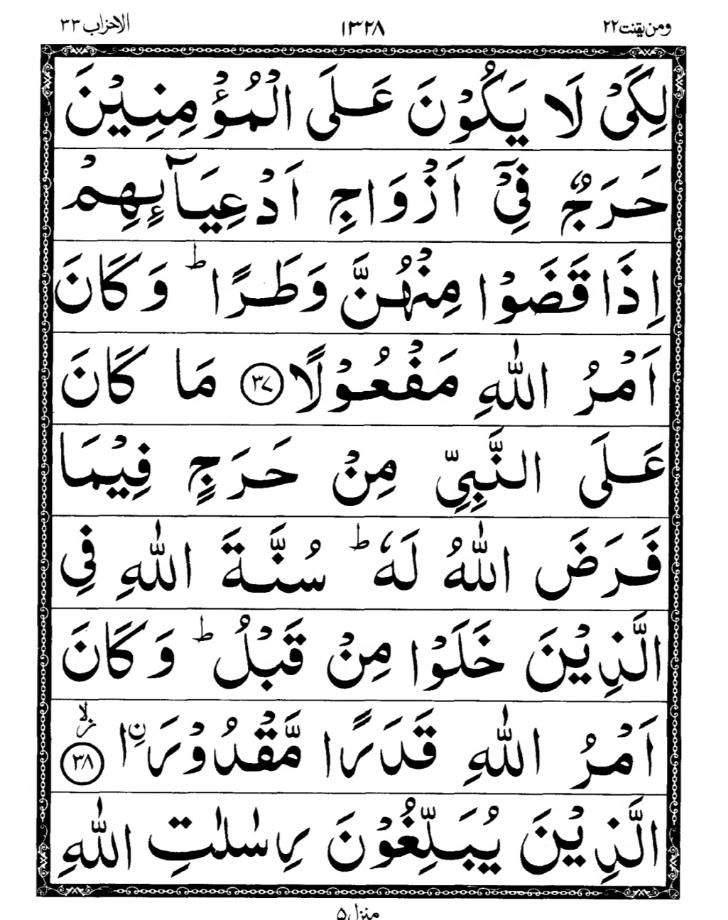 ومن يقنت ٢٢ ١٣٢٨ الاحزاب ٣٣
لِكَىْ لَا يَكُوْنَ عَلَى الْمُؤْمِنِيْنَ
حَرَجٌ فِىْٓ اَزْوَاجِ اَدْعِيَآئِهِمْ
اِذَا قَضَوْا مِنْهُنَّ وَطَرًا ؕ وَكَانَ
اَمْرُ اللّٰهِ مَفْعُوْلًا ﴿٣٧﴾ مَا كَانَ
عَلَى النَّبِىِّ مِنْ حَرَجٍ فِيْمَا
فَرَضَ اللّٰهُ لَهٗ ؕ سُنَّةَ اللّٰهِ فِى
الَّذِيْنَ خَلَوْا مِنْ قَبْلُ ؕ وَكَانَ
اَمْرُ اللّٰهِ قَدَرًا مَّقْدُوْرَاۨ ﴿٣٨﴾ۙز
الَّذِيْنَ يُبَلِّغُوْنَ رِسٰلٰتِ اللّٰهِ
منزل ٥